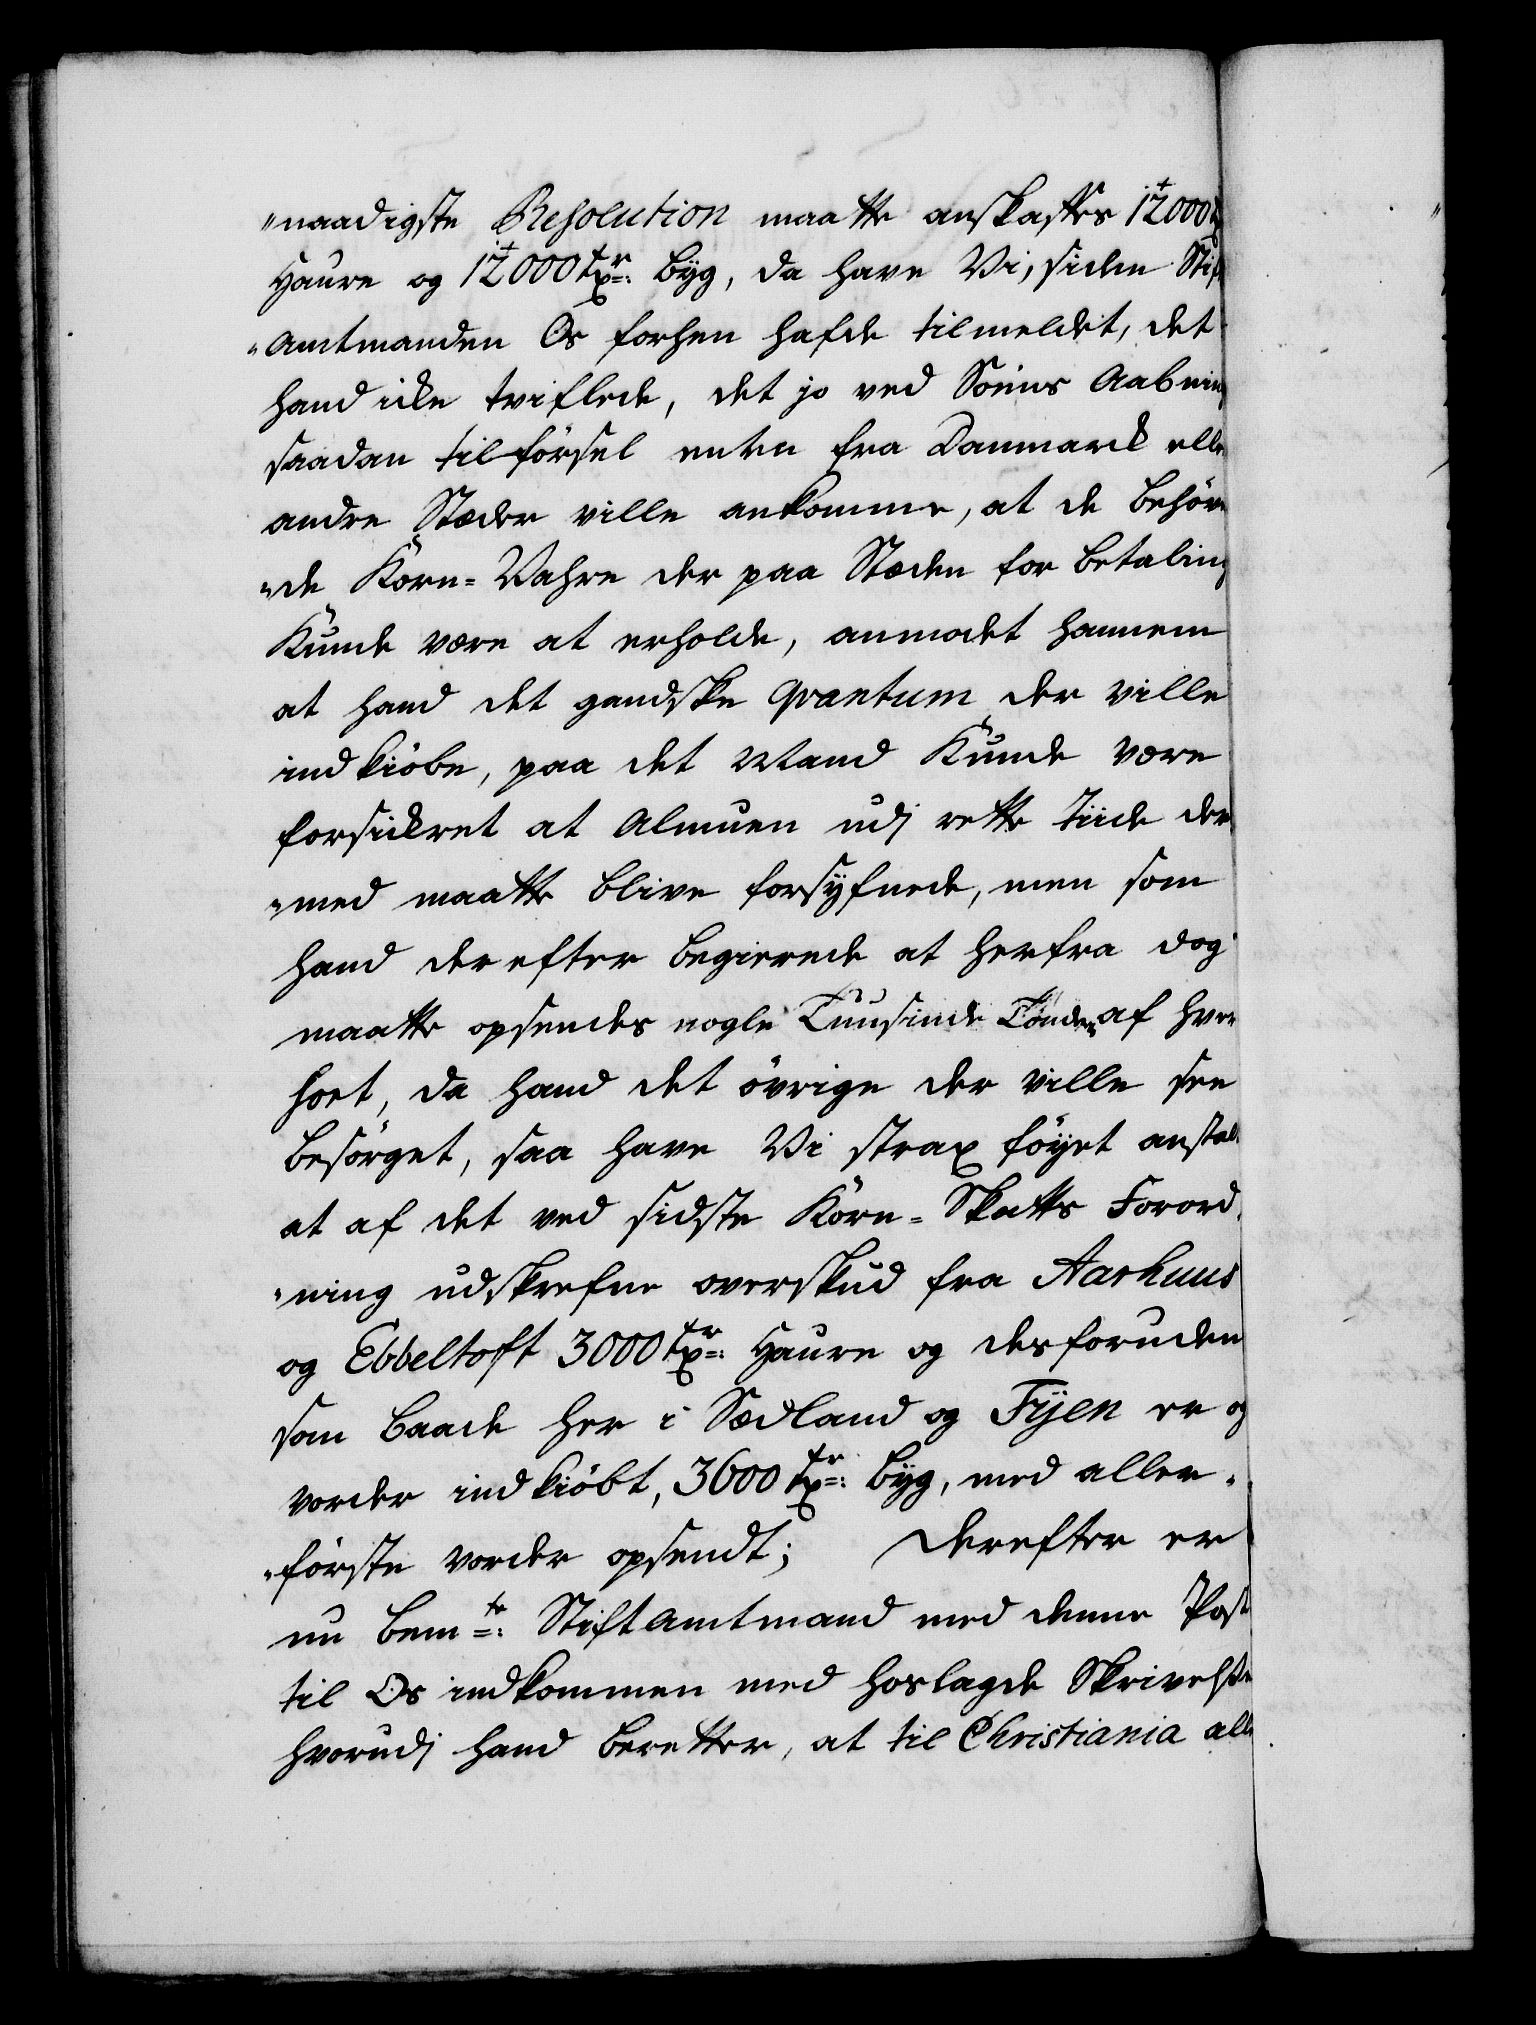 "naadigste Resolution maatte anskaffes 12000
Haure og 12000 tr: Byg, da have Vi, siden Stif
"Amtmanden Os forhen hafde tilmeldet, det
hand icke tviflede, det jo ved Söens Aabning
saadan tilförsel enten fra Danmarck elle
andre Stæder ville ankomme, at de behöve
"de Korn-Vahre der paa Stæden for betaling
Kunde være at erholde, anmodet hannem
at hand det gandske qvantum der ville
indkiöbe, paa det Mand Kunde være
forsickret at Almuen udj rette Tiide der
"med maatte blive forsyfnede, men som
hand derefter begierede at herfra dog
maatte opsendes nogle Tuusinde Tönder af hver
sort, da hand det övrige der ville see
besörget, saa have Vi strax föyet anstalt
at af det ved sidste Korn-Skatts Forord
"ning udskrefne overskud fra Aarhuus
og Ebbeltoft 3000 tr: Haure og desforuden
som baade her i Siælland og Fyen er og
vorder indkiöbt, 3600 tr: Byg, med aller
"förste vorder opsendt; Derefter er
nu bemte: Stiftamtmand med denne Post
til Os indkommen med hoslagde Skrivelse
hvorudj hand beretter, at til Christiania alle